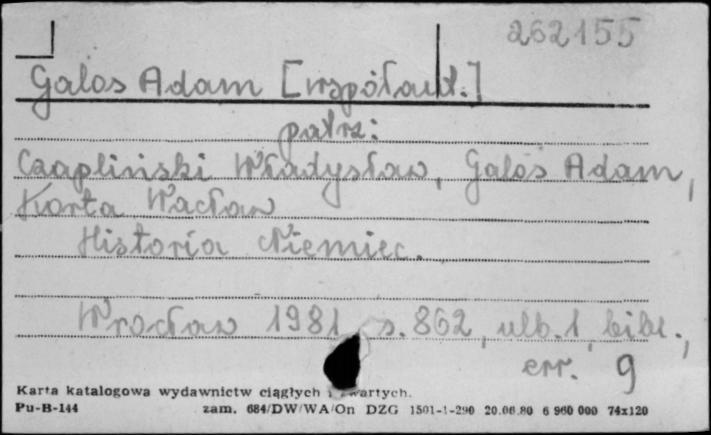 262155
Galos Adam [współaut.]
patrz:
Czapliński Władysław, Galos Adam,
Korta Wacław
Historia Niemiec.
Wrocław 1981 s. 862, ulb. 1, bibl.,
err. 9
Karta katalogowa wydawnictw ciągłych i zwartych.
Pu-B-144 zam. 684/DW/WA/On DZG 1501-1-290 20.06.80 6 960 000 74x120